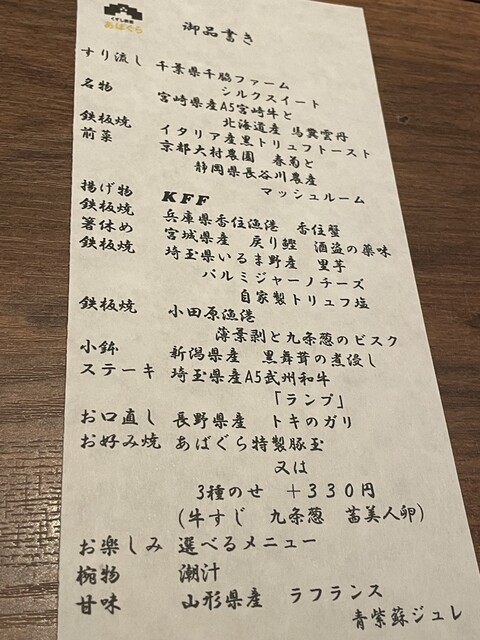 くすし鉄板
あばぐら
御品書き
すり流し 千葉県千脇ファーム
シルクスイート
名物 宮崎県産A5宮崎牛と
北海道産 馬糞雲丹
鉄板焼 イタリア産黒トリュフトースト
前菜 京都大村農園 春菊と
静岡県長谷川農産
マッシュルーム
揚げ物 KFF
鉄板焼 兵庫県香住漁港 香住蟹
箸休め 宮城県産 戻り鰹 酒盗の薬味
鉄板焼 埼玉県いるま野産 里芋
パルミジャーノチーズ
自家製トリュフ塩
鉄板焼 小田原漁港
薄葉剥と九条葱のビスク
小鉢 新潟県産 黒舞茸の煮浸し
ステーキ 埼玉県産A5武州和牛
「ランプ」
お口直し 長野県産 トキのガリ
お好み焼 あばぐら特製豚玉
又は
3種のせ +330円
(牛すじ 九条葱 蕾美人卵)
お楽しみ 選べるメニュー
椀物 潮汁
甘味 山形県産 ラフランス
青紫蘇ジュレ